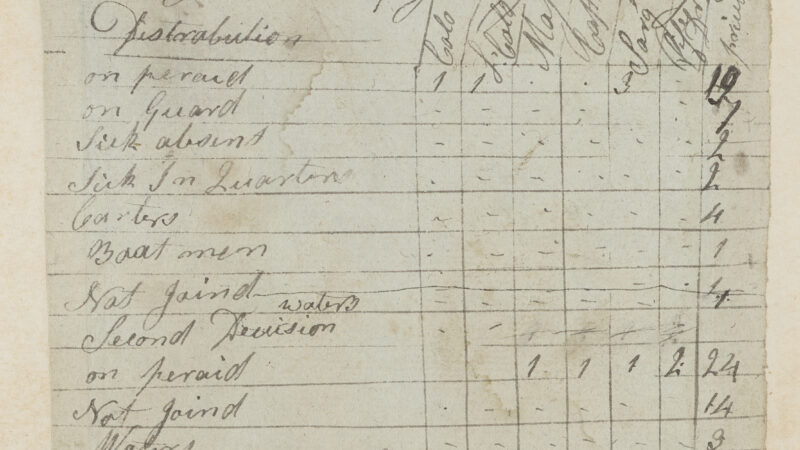 Distrabution Colo L: Colo Maj Cap Sarg privt
on peraid 1 1 19
on Guard 7
Sick absent 2
Sick In Quarters 2
Carters 4
Boat men 1
Not Joind
waters
Second Devision
on peraid 1 1 1 2 24
Not Joind 14
Waters 3